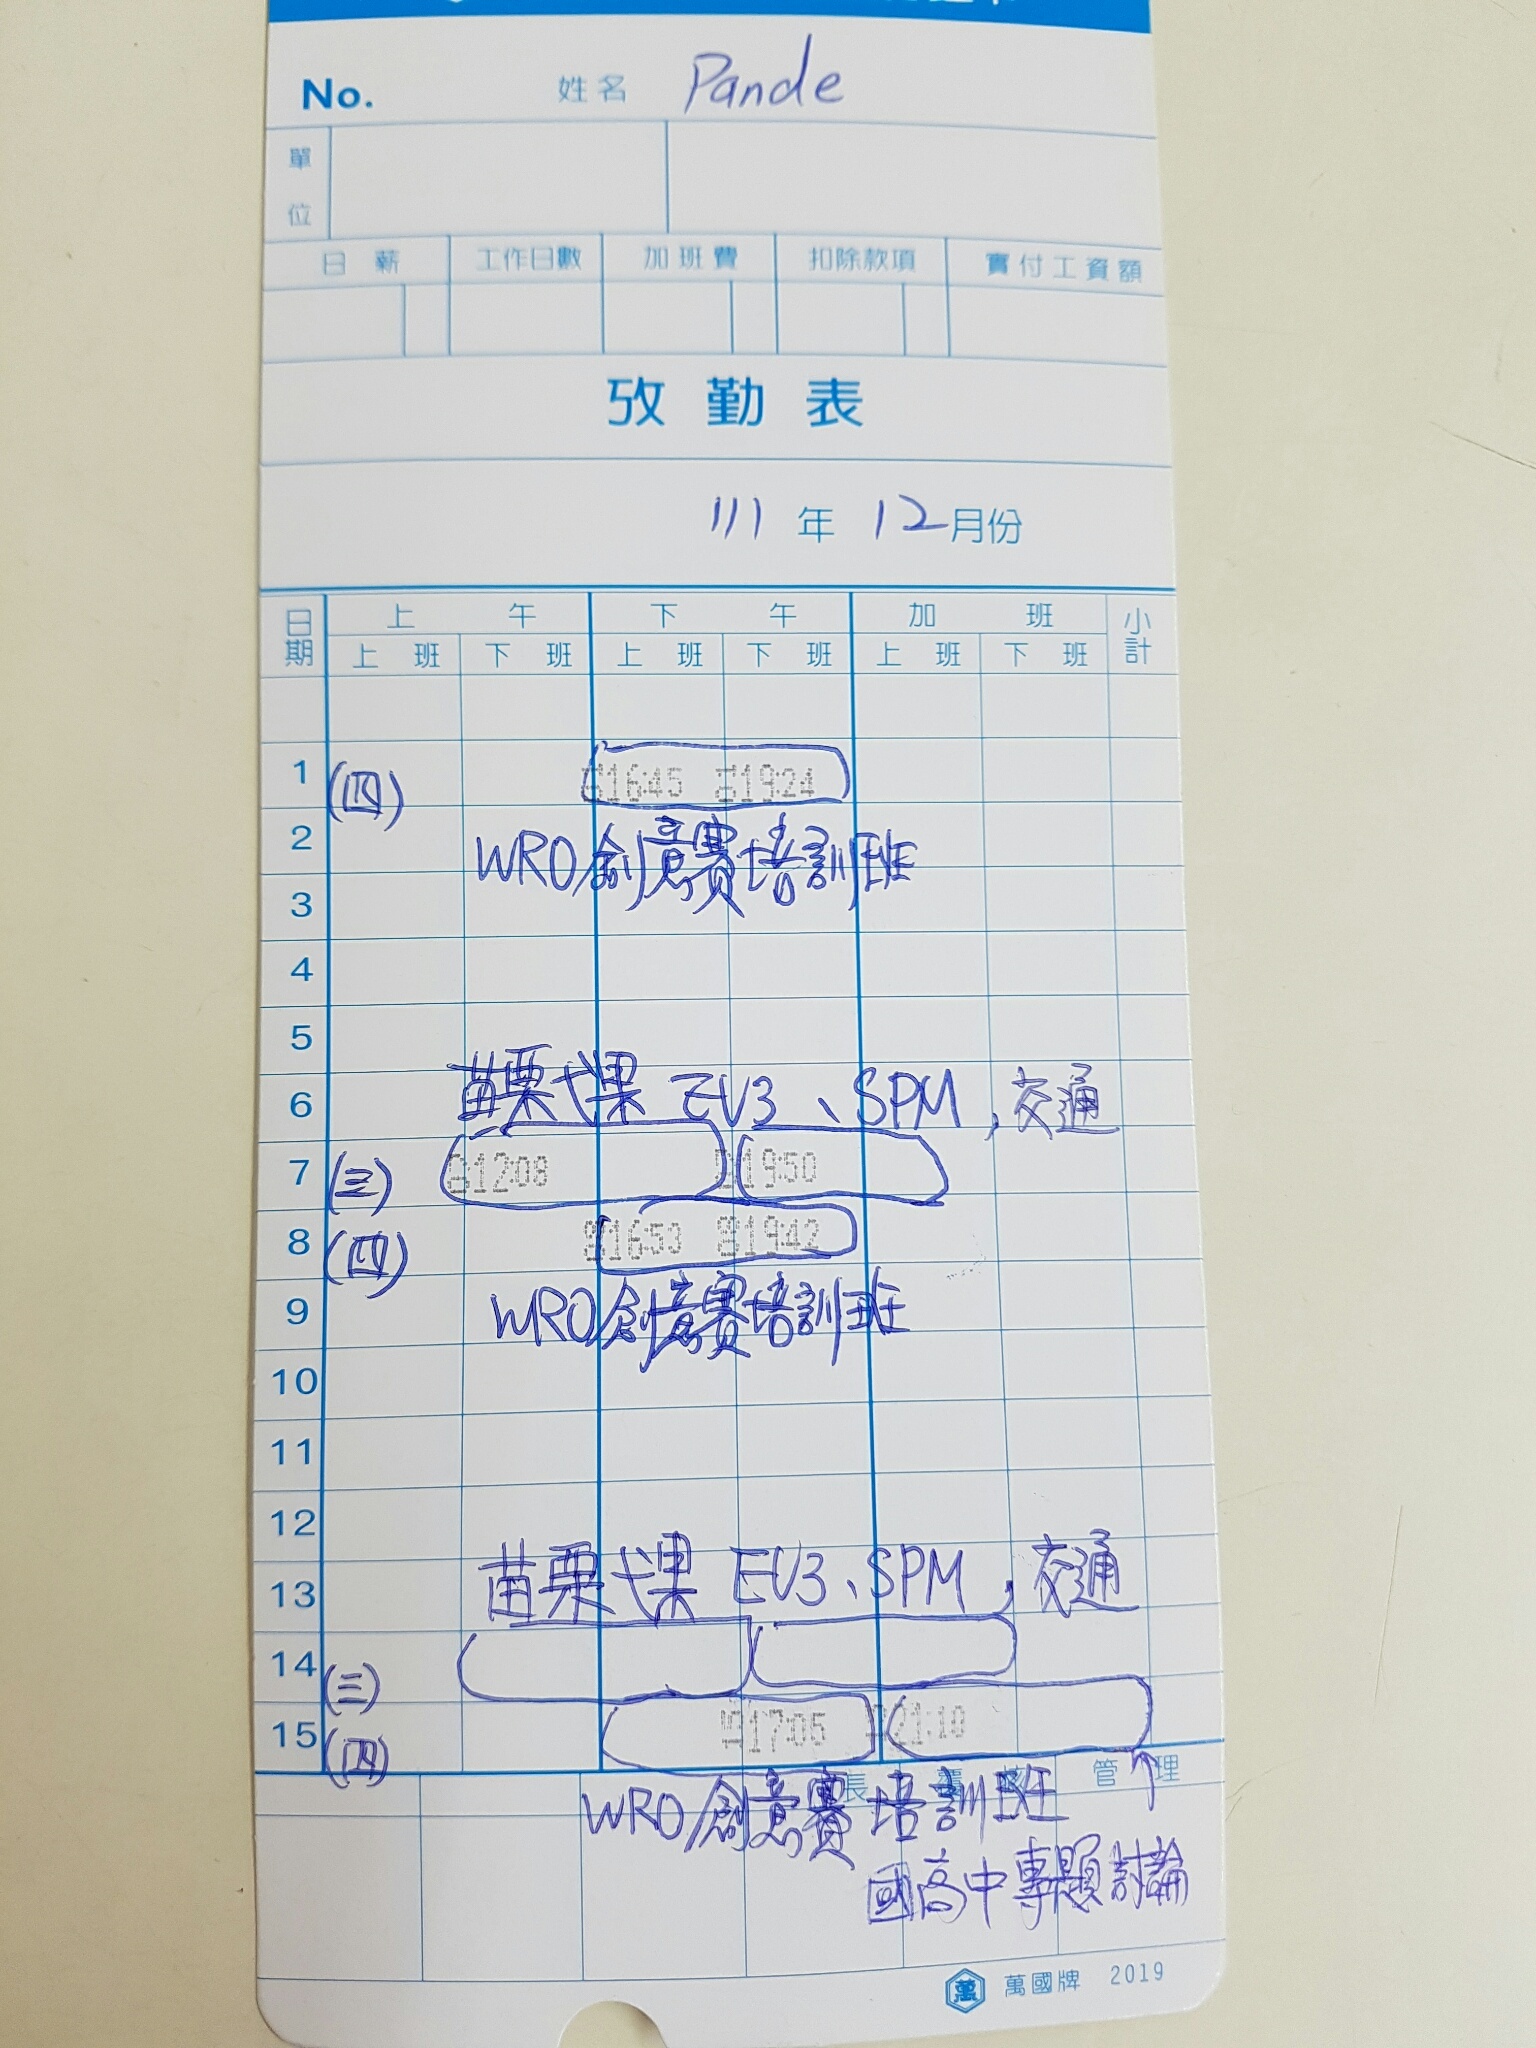 No. 姓名 Pande
單位
日薪 工作日數 加班費 扣除款項 實付工資額
攷勤表
111 年 12 月份
日期 上午 下午 加班 小計
上班 下班 上班 下班 上班 下班
1 (四) 16:45 19:24
2 WRO創意賽培訓班
3
4
5
6 苗栗代課 EV3、SPM,交通
7 (三) 12:08 19:50
8 (四) 16:53 19:42
9 WRO創意賽培訓班
10
11
12
13 苗栗代課 EV3、SPM,交通
14 (三)
15 (四) 17:05 21:10
長 管理
WRO創意賽培訓班 ↑
國高中專題討論
萬 萬國牌 2019